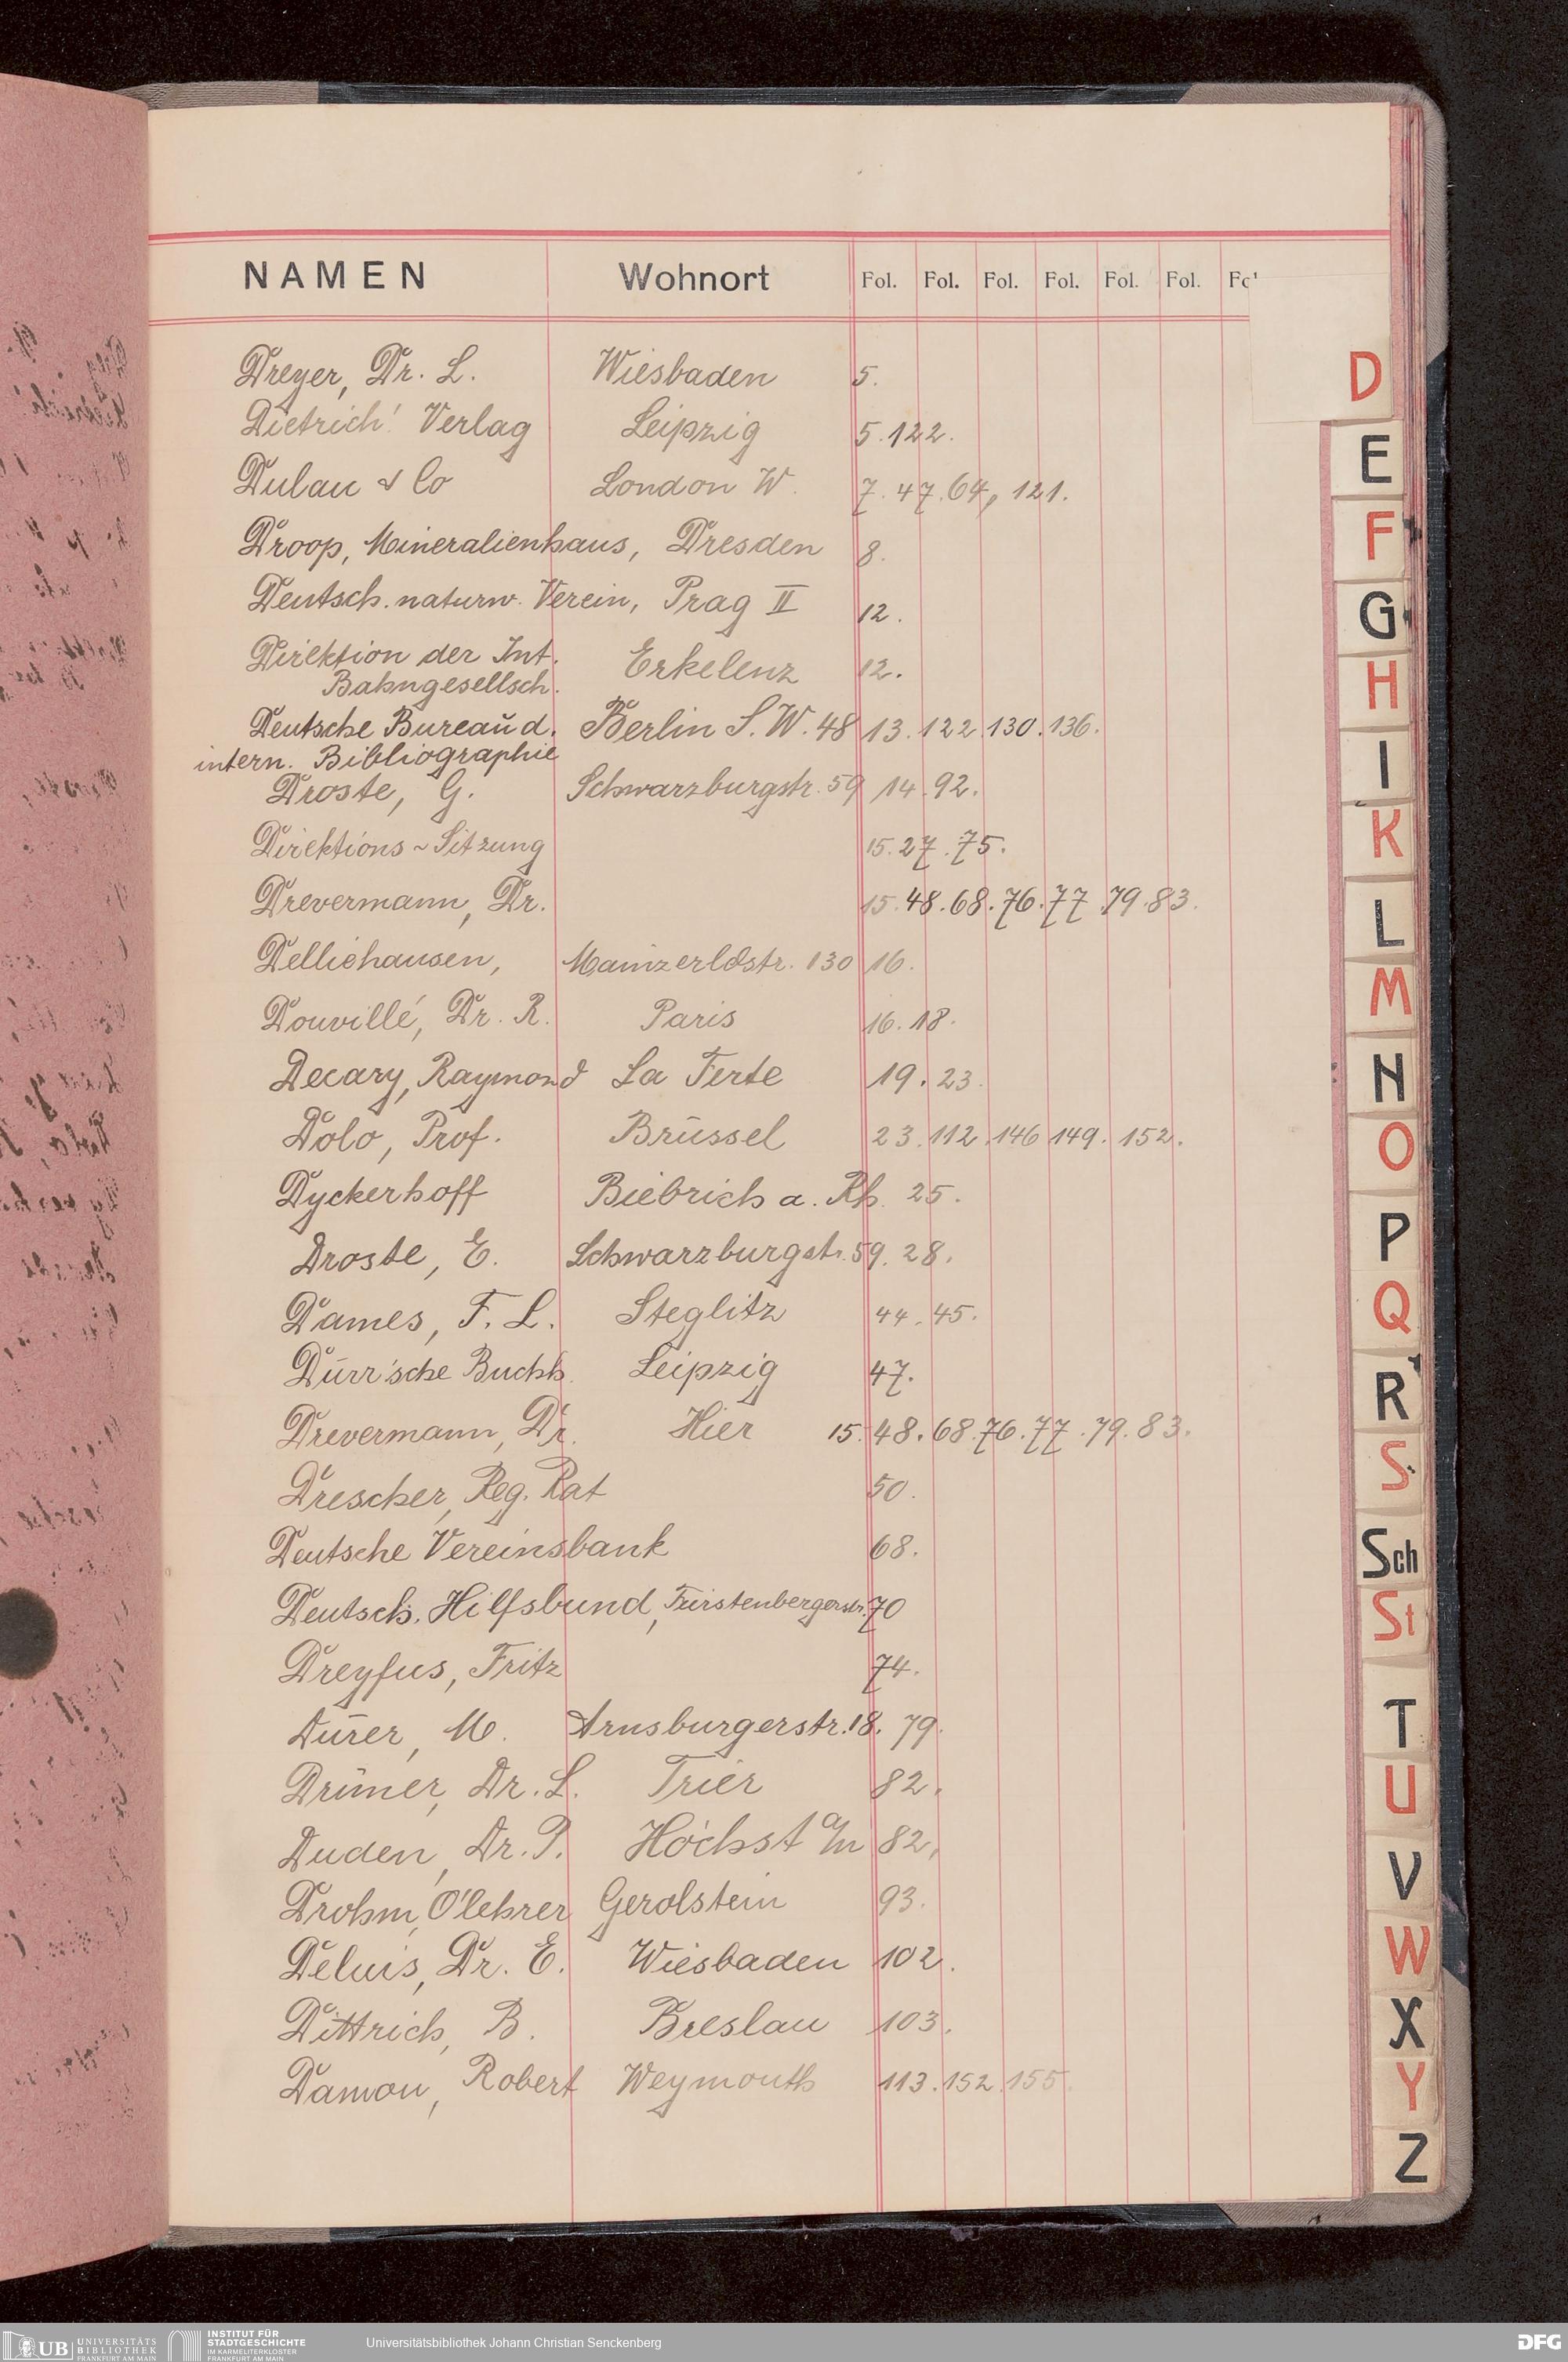 NAMEN Wohnort Fol. Fol. Fol. Fol. Fol. Fol. Fo
Dreyer, Dr. L. Wiesbaden 5.
Dietrich' Verlag Leipzig 5. 122.
Dulau & Co London W. 7. 47. 64, 121.
Droop, Mineralienhaus, Dresden 8.
Deutsch. naturw. Verein, Prag II 12.
Direktion der Int. Erkelenz 12.
Bahngesellsch.
Deutsche Bureau d. Berlin S.W. 48 13. 122. 130. 136.
intern. Bibliographie
Droste, G. Schwarzburgstr. 59 14. 92.
Direktions~Sitzung 15. 27. 75.
Drevermann, Dr. 15. 48. 68. 76. 77. 79. 83.
Delliehausen, 130 16.
Douvillé, Dr. R. Paris 16. 18.
Decary, Raymond La Ferte 19. 23.
Dolo, Prof. Brüssel 23. 112. 146 149. 152.
Dyckerhoff Biebrich a. Rh. 25.
Droste, E. Schwarzburgstr. 59. 28.
Dames, F. L. Steglitz 44. 45.
Dürr'sche Buchh. Leipzig 47.
Drevermann, Dr. Hier 15. 48. 68. 76. 77. 79. 83.
Drescher, Reg. Rat 50.
Deutsche Vereinsbank 68.
Deutsch. Hilfsbund, Fürstenbergerstr. 70
Dreyfus, Fritz 74.
Dürer, M. Arnsburgerstr. 18. 79.
Drüner, Dr. L. Trier 82.
Duden, Dr. P. Höchst a/m 82.
Drohm, O'lehrer Gerolstein 93.
Delius, Dr. E. Wiesbaden 102.
Dittrich, B. Breslau 103.
Damon, Robert Weymouth 113. 152. 155.
D
E
F
G
H
I
K
L
M
N
O
P
Q
R
S
Sch
St
T
U
V
W
X
Y
Z
UB UNIVERSITÄTS
BIBLIOTHEK
FRANKFURT AM MAIN
INSTITUT FÜR
STADTGESCHICHTE
IM KARMELITERKLOSTER
FRANKFURT AM MAIN
Universitätsbibliothek Johann Christian Senckenberg
DFG